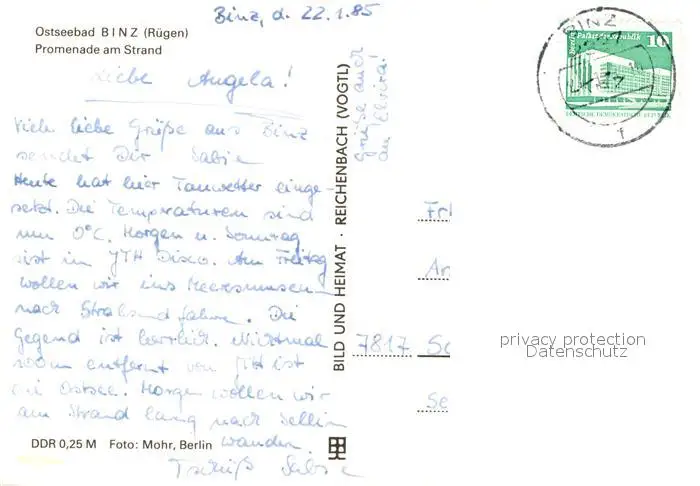 Binz, d. 22.1.85
Ostseebad BINZ (Rügen)
Promenade am Strand
Liebe Angela!
Viele liebe Grüße aus Binz
sendet Dir Sabie
Heute hat hier Tauwetter einge-
setzt. Die Temperaturen sind
um 0°C. Morgen u. Sonntag
ist in JTH Disco. Am Freitag
wollen wir ins Meeresmuseum
nach Stralsund fahren. Die
Gegend ist herrlich. Nicht mal
100m entfernt von JTH ist
die Ostsee. Morgen wollen wir
am Strand lang nach Sellin
wandern.
Tschüß Sabie
DDR 0,25 M Foto: Mohr, Berlin
BILD UND HEIMAT · REICHENBACH (VOGTL)
Grüße auch
an Elvira!
BINZ
Berlin, Palast der Republik
10
DEUTSCHE DEMOKRATISCHE REPUBLIK
f
Frl
An
7817 Sc
Se
privacy protection
Datenschutz